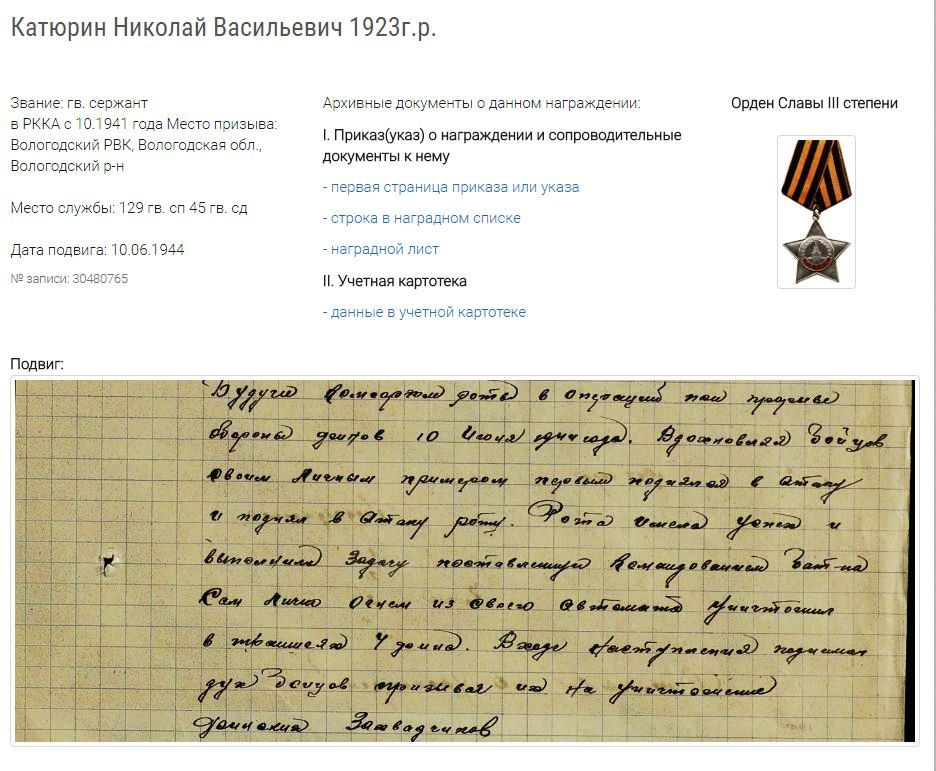 Катюрин Николай Васильевич 1923г.р.
Звание: гв. сержант
в РККА с 10.1941 года Место призыва:
Вологодский РВК, Вологодская обл.,
Вологодский р-н
Место службы: 129 гв. сп 45 гв. сд
Дата подвига: 10.06.1944
№ записи: 30480765
Архивные документы о данном награждении:
I. Приказ(указ) о награждении и сопроводительные
документы к нему
- первая страница приказа или указа
- строка в наградном списке
- наградной лист
II. Учетная картотека
- данные в учетной картотеке
Орден Славы III степени
Подвиг:
Будучи комсоргом роты в операции при прорыве
обороны финов 10 Июня 1944 года. Вдохновляя Бойцов
своим Личным примером первым поднялся в атаку
и поднял в Атаку роту. Рота имела успех и
выполнила Задачу поставленную Командованием Бат-на
Сам Лично Огнем из своего автомата Уничтожил
в траншеях 4 фина. В ходе Наступления поднимал
дух Бойцов призывая их на Уничтожение
Финских Захватчиков